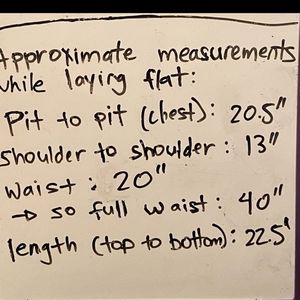 Approximate measurements
while laying flat:
Pit to pit (chest): 20.5"
shoulder to shoulder: 13"
waist: 20"
→ so full waist: 40"
length (top to bottom): 22.5"